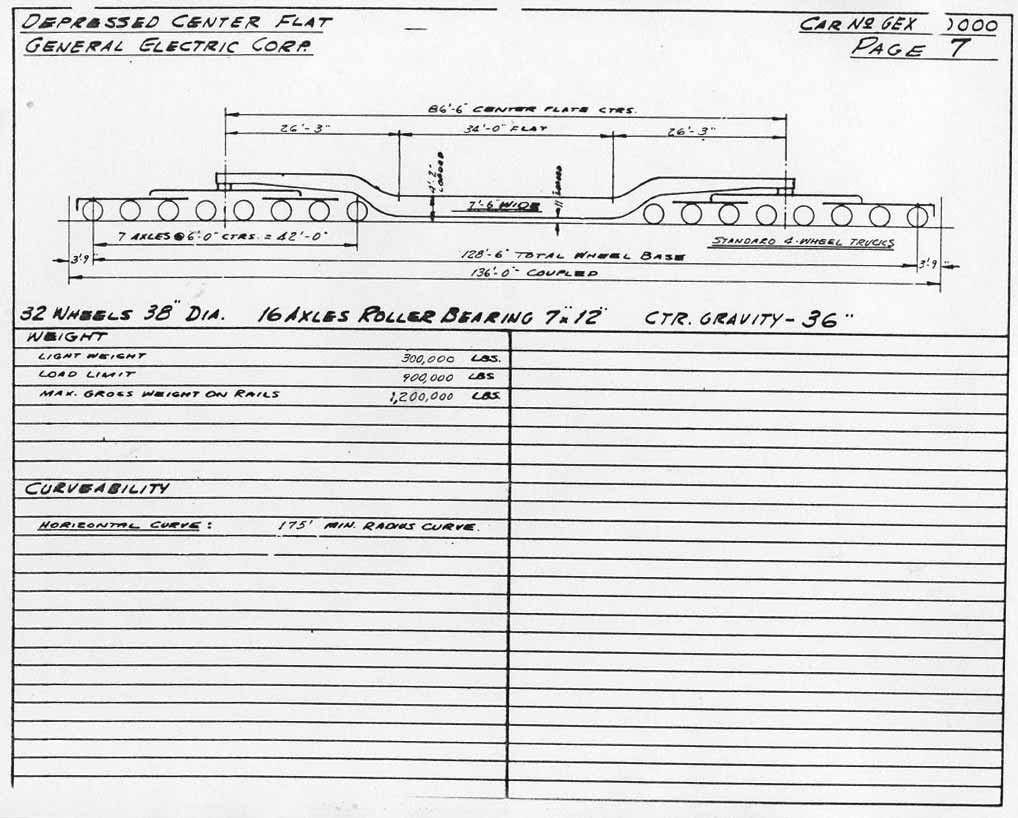 DEPRESSED CENTER FLAT
GENERAL ELECTRIC CORP.
CAR Nº GEX 1000
PAGE 7
86'-6" CENTER PLATE CTRS.
26'-3" 34'-0" FLAT 26'-3"
4'-2" LOADED
11" LOADED
7'-6" WIDE
7 AXLES @ 6'-0" CTRS. = 42'-0"
STANDARD 4-WHEEL TRUCKS
3'9 128'-6" TOTAL WHEEL BASE 3'9"
136'-0" COUPLED
32 WHEELS 38" DIA. 16 AXLES ROLLER BEARING 7"x12" CTR. GRAVITY - 36"
WEIGHT
LIGHT WEIGHT 300,000 LBS.
LOAD LIMIT 900,000 LBS
MAX. GROSS WEIGHT ON RAILS 1,200,000 LBS.
CURVEABILITY
HORIZONTAL CURVE: 175' MIN. RADIUS CURVE.